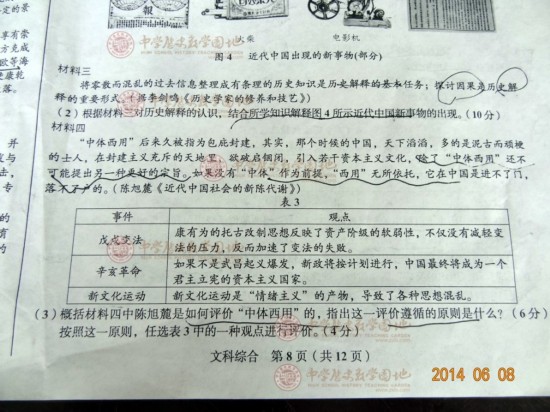 火柴 电影机
图4 近代中国出现的新事物(部分)
材料三
将零散而混乱的过去信息整理成有条理的历史知识是历史解释的基本任务;探讨因果是历史解
释的重要形式。——李剑鸣《历史学家的修养和技艺》
(2)根据材料三对历史解释的认识,结合所学知识解释图4所示近代中国新事物的出现。(10分)
材料四
“中体西用”后来久被指为包庇封建,其实,那个时候的中国,天下滔滔,多的是泥古而顽梗
的士人,在封建主义充斥的天地里,欲破启锢闭,引入若干资本主义文化,除了“中体西用”还不
可能提出另一种更好的宗旨。如果没有“中体”作为前提,“西用”无所依托,它在中国是进不了门,
落不了户的。(陈旭麓《近代中国社会的新陈代谢》)
表3
事件 观点
戊戌变法 康有为的托古改制思想反映了资产阶级的软弱性,不仅没有减轻变
法的压力,反而加速了变法的失败。
辛亥革命 如果不是武昌起义爆发,新政将按计划进行,中国最终将成为一个
君主立宪的资本主义国家。
新文化运动 新文化运动是“情绪主义”的产物,导致了各种思想混乱。
(3)概括材料四中陈旭麓是如何评价“中体西用”的,指出这一评价遵循的原则是什么?(6分)
按照这一原则,任选表3中的一种观点进行评价。(4分)
文科综合 第8页(共12页)
中学历史教学园地
2014 06 08